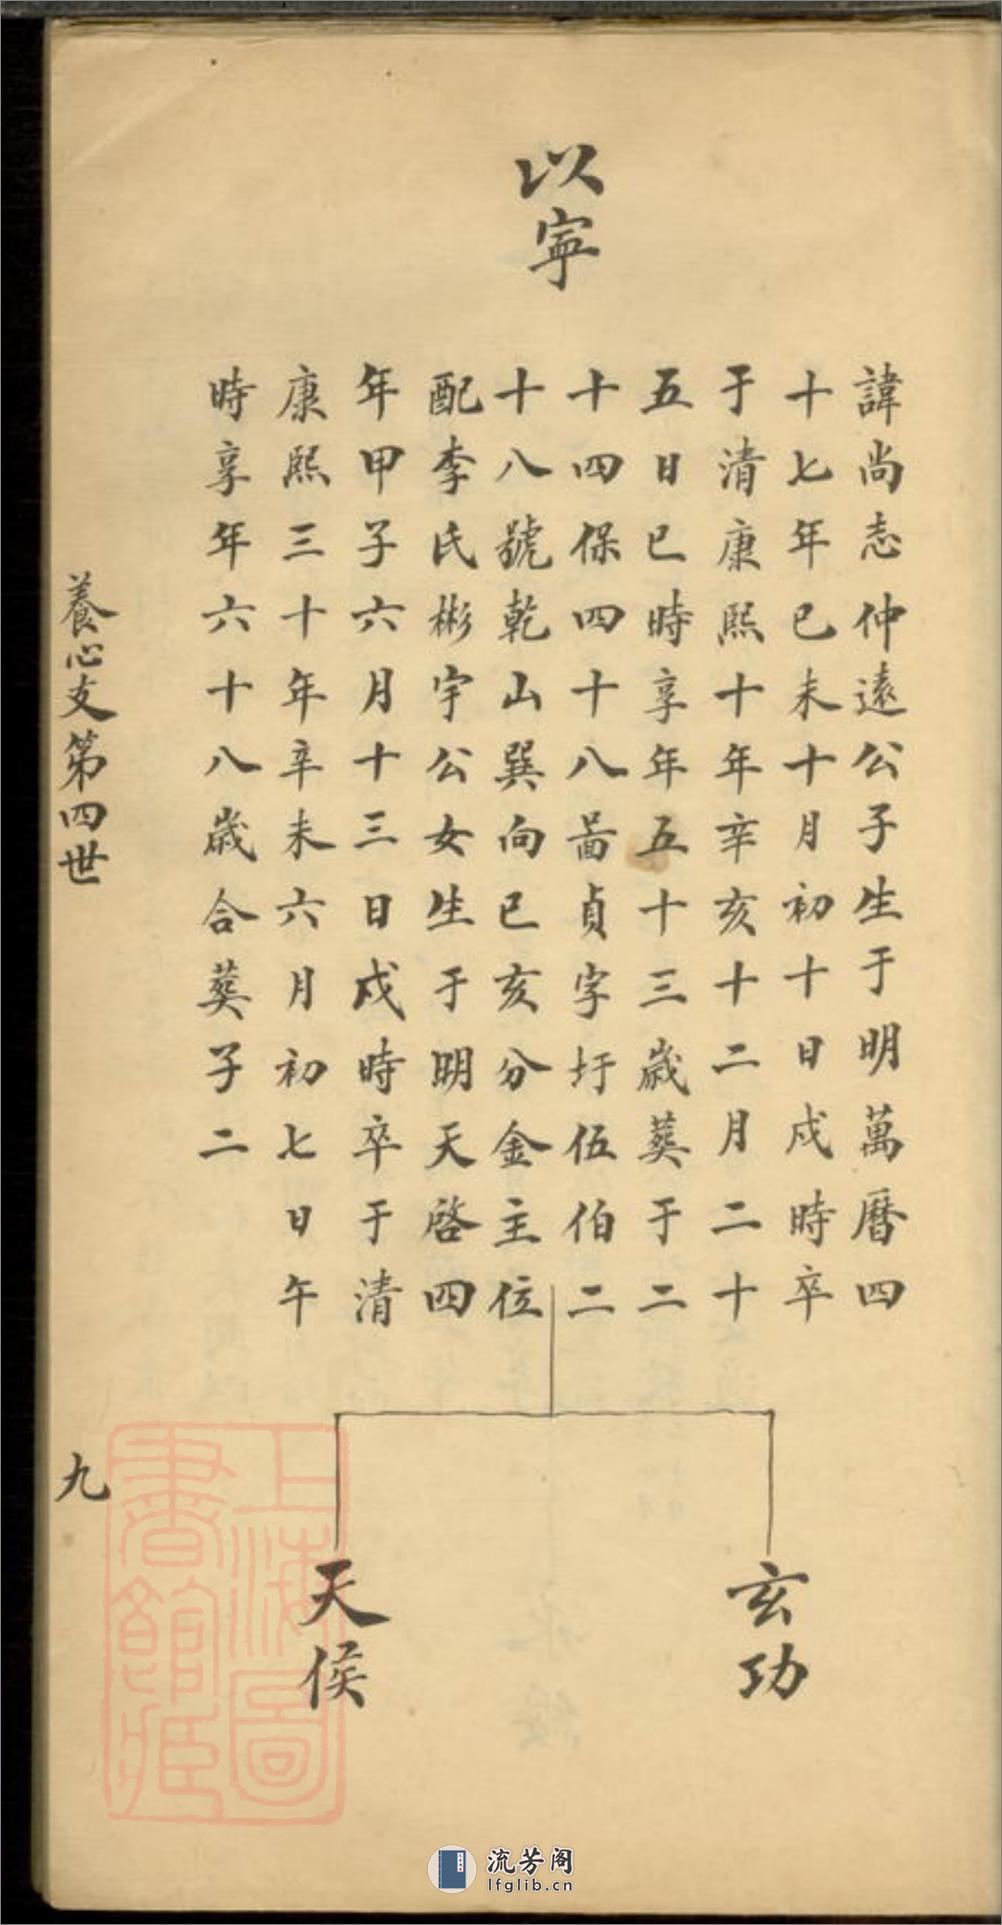 以寧
諱尚志仲遠公子生于明萬曆四
十七年己未十月初十日戌時卒
于清康熙十年辛亥十二月二十
五日巳時享年五十三歲葬于二
十四保四十八啚貞字圩伍伯二
十八號乾山巽向已亥分金主位
配李氏彬宇公女生于明天啓四
年甲子六月十三日戌時卒于清
康熙三十年辛未六月初七日午
時享年六十八歲合葬子二
玄功
天侯
養心支第四世
九
上海圖書館藏
流芳阁
lfglib.cn